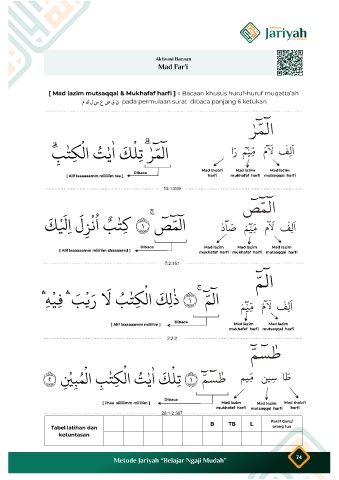 Jariyah
Aktivasi Bacaan
Mad Far'i
[ Mad lazim mutsaqqal & Mukhafaf harfi ] = Bacaan khusus huruf-huruf muqatta'ah
م ك ل س ع ص ق ن pada permulaan surat dibaca panjang 6 ketukan
الٓمّٓرٰ
الٓمّٓرٰ ۗ تِلْكَ اٰيٰتُ الْكِتٰبِ ۗ
اَلِفْ لَآمْ مِّيْمْ رَا
Dibaca
[ Alif laaaaaamm miiiiim raa ]
Mad thabi'i harfi
Mad lazim mukhafaf harfi
Mad lazim mutsaqqal harfi
الٓمّٓصٓ
الٓمّٓصٓ ۚ ۝١ كِتٰبٌ اُنْزِلَ اِلَيْكَ
اَلِفْ لَآمْ مِّيْمْ صَآدْ
Dibaca
Mad lazim mukhafaf harfi
Mad lazim mukhafaf harfi
Mad lazim mutsaqqal harfi
7:2:151
الٓمّٓ
الٓمّٓ ۚ ۝١ ذٰلِكَ الْكِتٰبُ لَا رَيْبَ ۛ فِيْهِ ۛ
اَلِفْ لَآمْ مِّيْمْ
Dibaca
[ Alif laaaaaamm miiiiim ]
Mad lazim mukhafaf harfi
Mad lazim mutsaqqal harfi
2:2:2
طٰسۤمّۤ
طٰسۤمّۤ ۝١ تِلْكَ اٰيٰتُ الْكِتٰبِ الْمُبِيْنِ ۝٢
طَا سِيْن مِّيْمْ
Dibaca
Mad lazim mukhafaf harfi
Mad lazim mutsaqqal harfi
Mad thabi'i harfi
28:1-2:367
Tabel latihan dan ketuntasan
B TB L
Paraf Guru/ orang tua
Metode Jariyah "Belajar Ngaji Mudah"
74